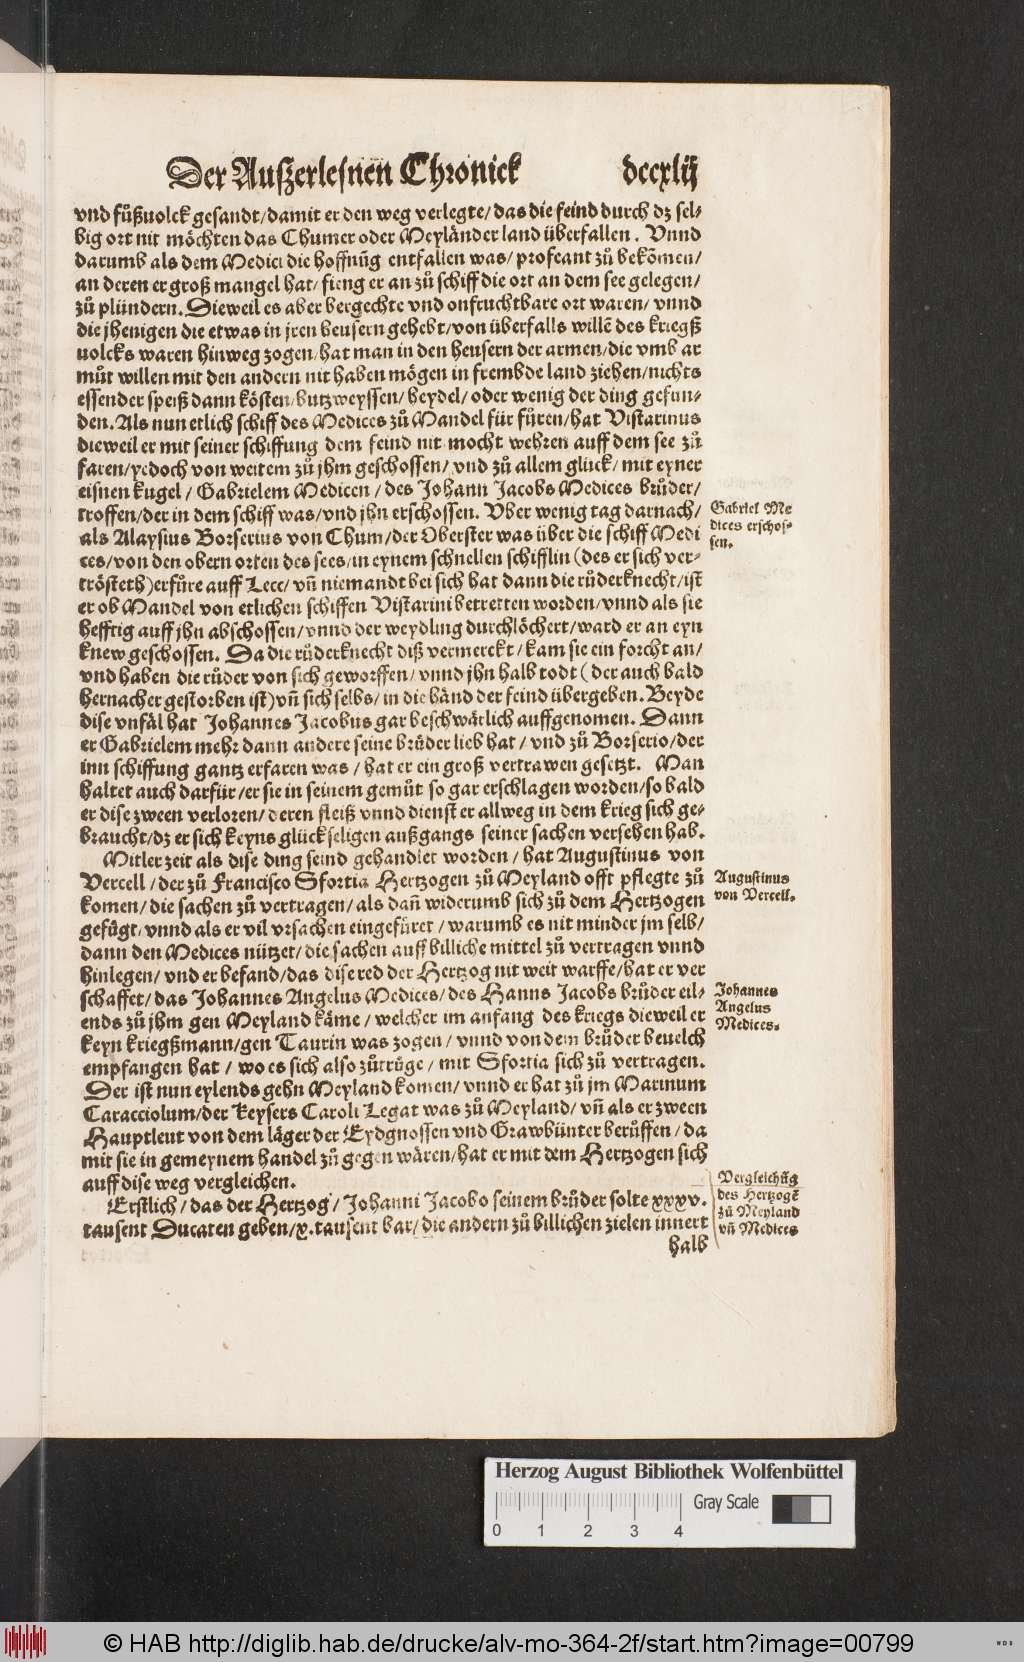 Der Auſzerleſnen Chronick dccxlij
vnd fůßuolck geſandt/damit er den weg verlegte/das die feind durch dz ſel⸗
big ort nit möchten das Chumer oder Meyländer land überfallen. Vnnd
darumb als dem Medici die hoffnūg entfallen was/profeant zů bekõmen/
an deren er groß mangel hat/fieng er an zů ſchiff die ort an dem ſee gelegen/
zů plündern. Dieweil es aber bergechte vnd onfruchtbare ort waren/vnnd
die jhenigen die etwas in jren heuſern gehebt/von überfalls willē des kriegß
uolcks waren hinweg zogen/hat man in den heuſern der armen/die vmb ar
můt willen mit den andern nit haben mögen in frembde land ziehen/nichts
eſſender ſpeiß dann köſten/butzweyſſen/heydel/oder wenig der ding gefun⸗
den. Als nun etlich ſchiff des Medices zů Mandel für fůren/hat Viſtarinus
dieweil er mit ſeiner ſchiffung dem feind nit mocht wehren auff dem ſee zů
faren/yedoch von weitem zů jhm geſchoſſen/vnd zů allem glück/mit eyner
eiſnen kugel/Gabrielem Medicen/des Johann Jacobs Medices brůder/
troffen/der in dem ſchiff was/vnd jhn erſchoſſen. Vber wenig tag darnach/
als Alayſius Borſerius von Chum/der Oberſter was über die ſchiff Medi
ces/von den obern orten des ſees/in eynem ſchnellen ſchifflin (des er ſich ver⸗
tröſteth) erfůre auff Lecc/vñ niemandt bei ſich hat dann die růderknecht/iſt
er ob Mandel von etlichen ſchiffen Viſtarini betretten worden/vnnd als ſie
hefftig auff jhn abſchoſſen/vnnd der weydling durchlöchert/ward er an eyn
knew geſchoſſen. Da die růderknecht diß vermerckt/kam ſie ein forcht an/
vnd haben die růder von ſich geworffen/vnnd jhn halb todt (der auch bald
hernacher geſtorben iſt) vñ ſich ſelbs/in die händ der feind übergeben. Beyde
diſe vnfäl hat Johannes Jacobus gar beſchwärlich auffgenomen. Dann
er Gabrielem mehr dann andere ſeine brůder lieb hat/vnd zů Borſerio/der
inn ſchiffung gantz erfaren was/hat er ein groß vertrawen geſetzt. Man
haltet auch darfür/er ſie in ſeinem gemůt ſo gar erſchlagen worden/ſo bald
er diſe zween verloren/deren fleiß vnnd dienſt er allweg in dem krieg ſich ge⸗
braucht/dz er ſich keyns glückſeligen außgangs ſeiner ſachen verſehen hab.
Mitler zeit als diſe ding ſeind gehandlet worden/hat Auguſtinus von
Vercell/der zů Franciſco Sfortia Hertzogen zů Meyland offt pflegte zů
komen/die ſachen zů vertragen/als dañ widerumb ſich zů dem Hertzogen
gefůgt/vnnd als er vil vrſachen eingefůret/warumb es nit minder jm ſelb/
dann den Medices nützet/die ſachen auff billiche mittel zů vertragen vnnd
hinlegen/vnd er befand/das diſe red der Hertzog nit weit warffe/hat er ver
ſchaffet/das Johannes Angelus Medices/des Hanns Jacobs brůder eil⸗
ends zů jhm gen Meyland käme/welcher im anfang des kriegs dieweil er
keyn kriegßmann/gen Taurin was zogen/vnnd von dem brůder beuelch
empfangen hat/wo es ſich alſo zůtrüge/mit Sfortia ſich zů vertragen.
Der iſt nun eylends gehn Meyland komen/vnnd er hat zů jm Marinum
Caracciolum/der Keyſers Caroli Legat was zů Meyland/vñ als er zween
Hauptleut von dem läger der Eydgnoſſen vnd Grawbünter berůffen/da
mit ſie in gemeynem handel zů gegen wären/hat er mit dem Hertzogen ſich
auff diſe weg vergleichen.
Erſtlich/das der Hertzog/Johanni Jacobo ſeinem brůder ſolte xxxv.
tauſent Ducaten geben/x. tauſent bar/die andern zů billichen zielen innert
halb
Gabriel Me
dices erſchoſ⸗
ſen.
Auguſtinus
von Vercell.
Johannes
Angelus
Medices.
Vergleichũg
des Hertzogē
zů Meyland
vñ Medices
Herzog August Bibliothek Wolfenbüttel
0 1 2 3 4 Gray Scale
© HAB http://diglib.hab.de/drucke/alv-mo-364-2f/start.htm?image=00799